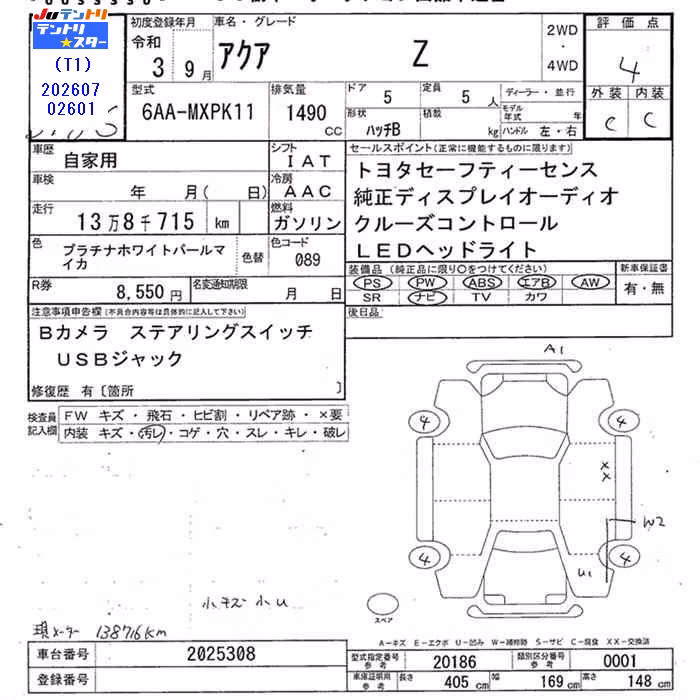 JUテントリ
テントリ★スター
(T1)
202607
02601
初度登録年月
令和
3年 9月
車名・グレード
アクア Z
2WD
・
4WD
評価点
4
外装 内装
C C
型式
6AA-MXPK11
排気量
1490
CC
ドア
5
定員
5人
形状
ハッチB
積数
kg
ディーラー・並行
モデル年式 年
ハンドル 左・右
車歴
自家用
シフト
IAT
車検
年 月( 日)
冷房
AAC
走行
13万8千715 km
燃料
ガソリン
色
プラチナホワイトパールマイカ
色替
色コード
089
R券
8,550円
名変通知期限
月 日
セールスポイント(正常に機能するものに限ります)
トヨタセーフティーセンス
純正ディスプレイオーディオ
クルーズコントロール
LEDヘッドライト
装備品(純正品に限り○をつけてください)
PS PW ABS エアB AW
SR ナビ TV カワ
新車保証書
有・無
後日品
注意事項申告欄(不具合内容等は具体的に記入して下さい)
Bカメラ ステアリングスイッチ
USBジャック
修復歴 有〔箇所 〕
検査員記入欄
FW キズ・飛石・ヒビ割・リペア跡・×要
内装 キズ・汚レ・コゲ・穴・スレ・キレ・破レ
A1
4
4
XX
W2
4
4
U1
スペア
小キズ 小U
現メーター 138716km
A-キズ E-エクボ U-凹み W-補修跡 S-サビ C-腐食 XX-交換済
車台番号
2025308
登録番号
型式指定番号
参考
20186
類別区分番号
参考
0001
車庫証明用
参考
長さ 405cm 幅 169cm 高さ 148cm